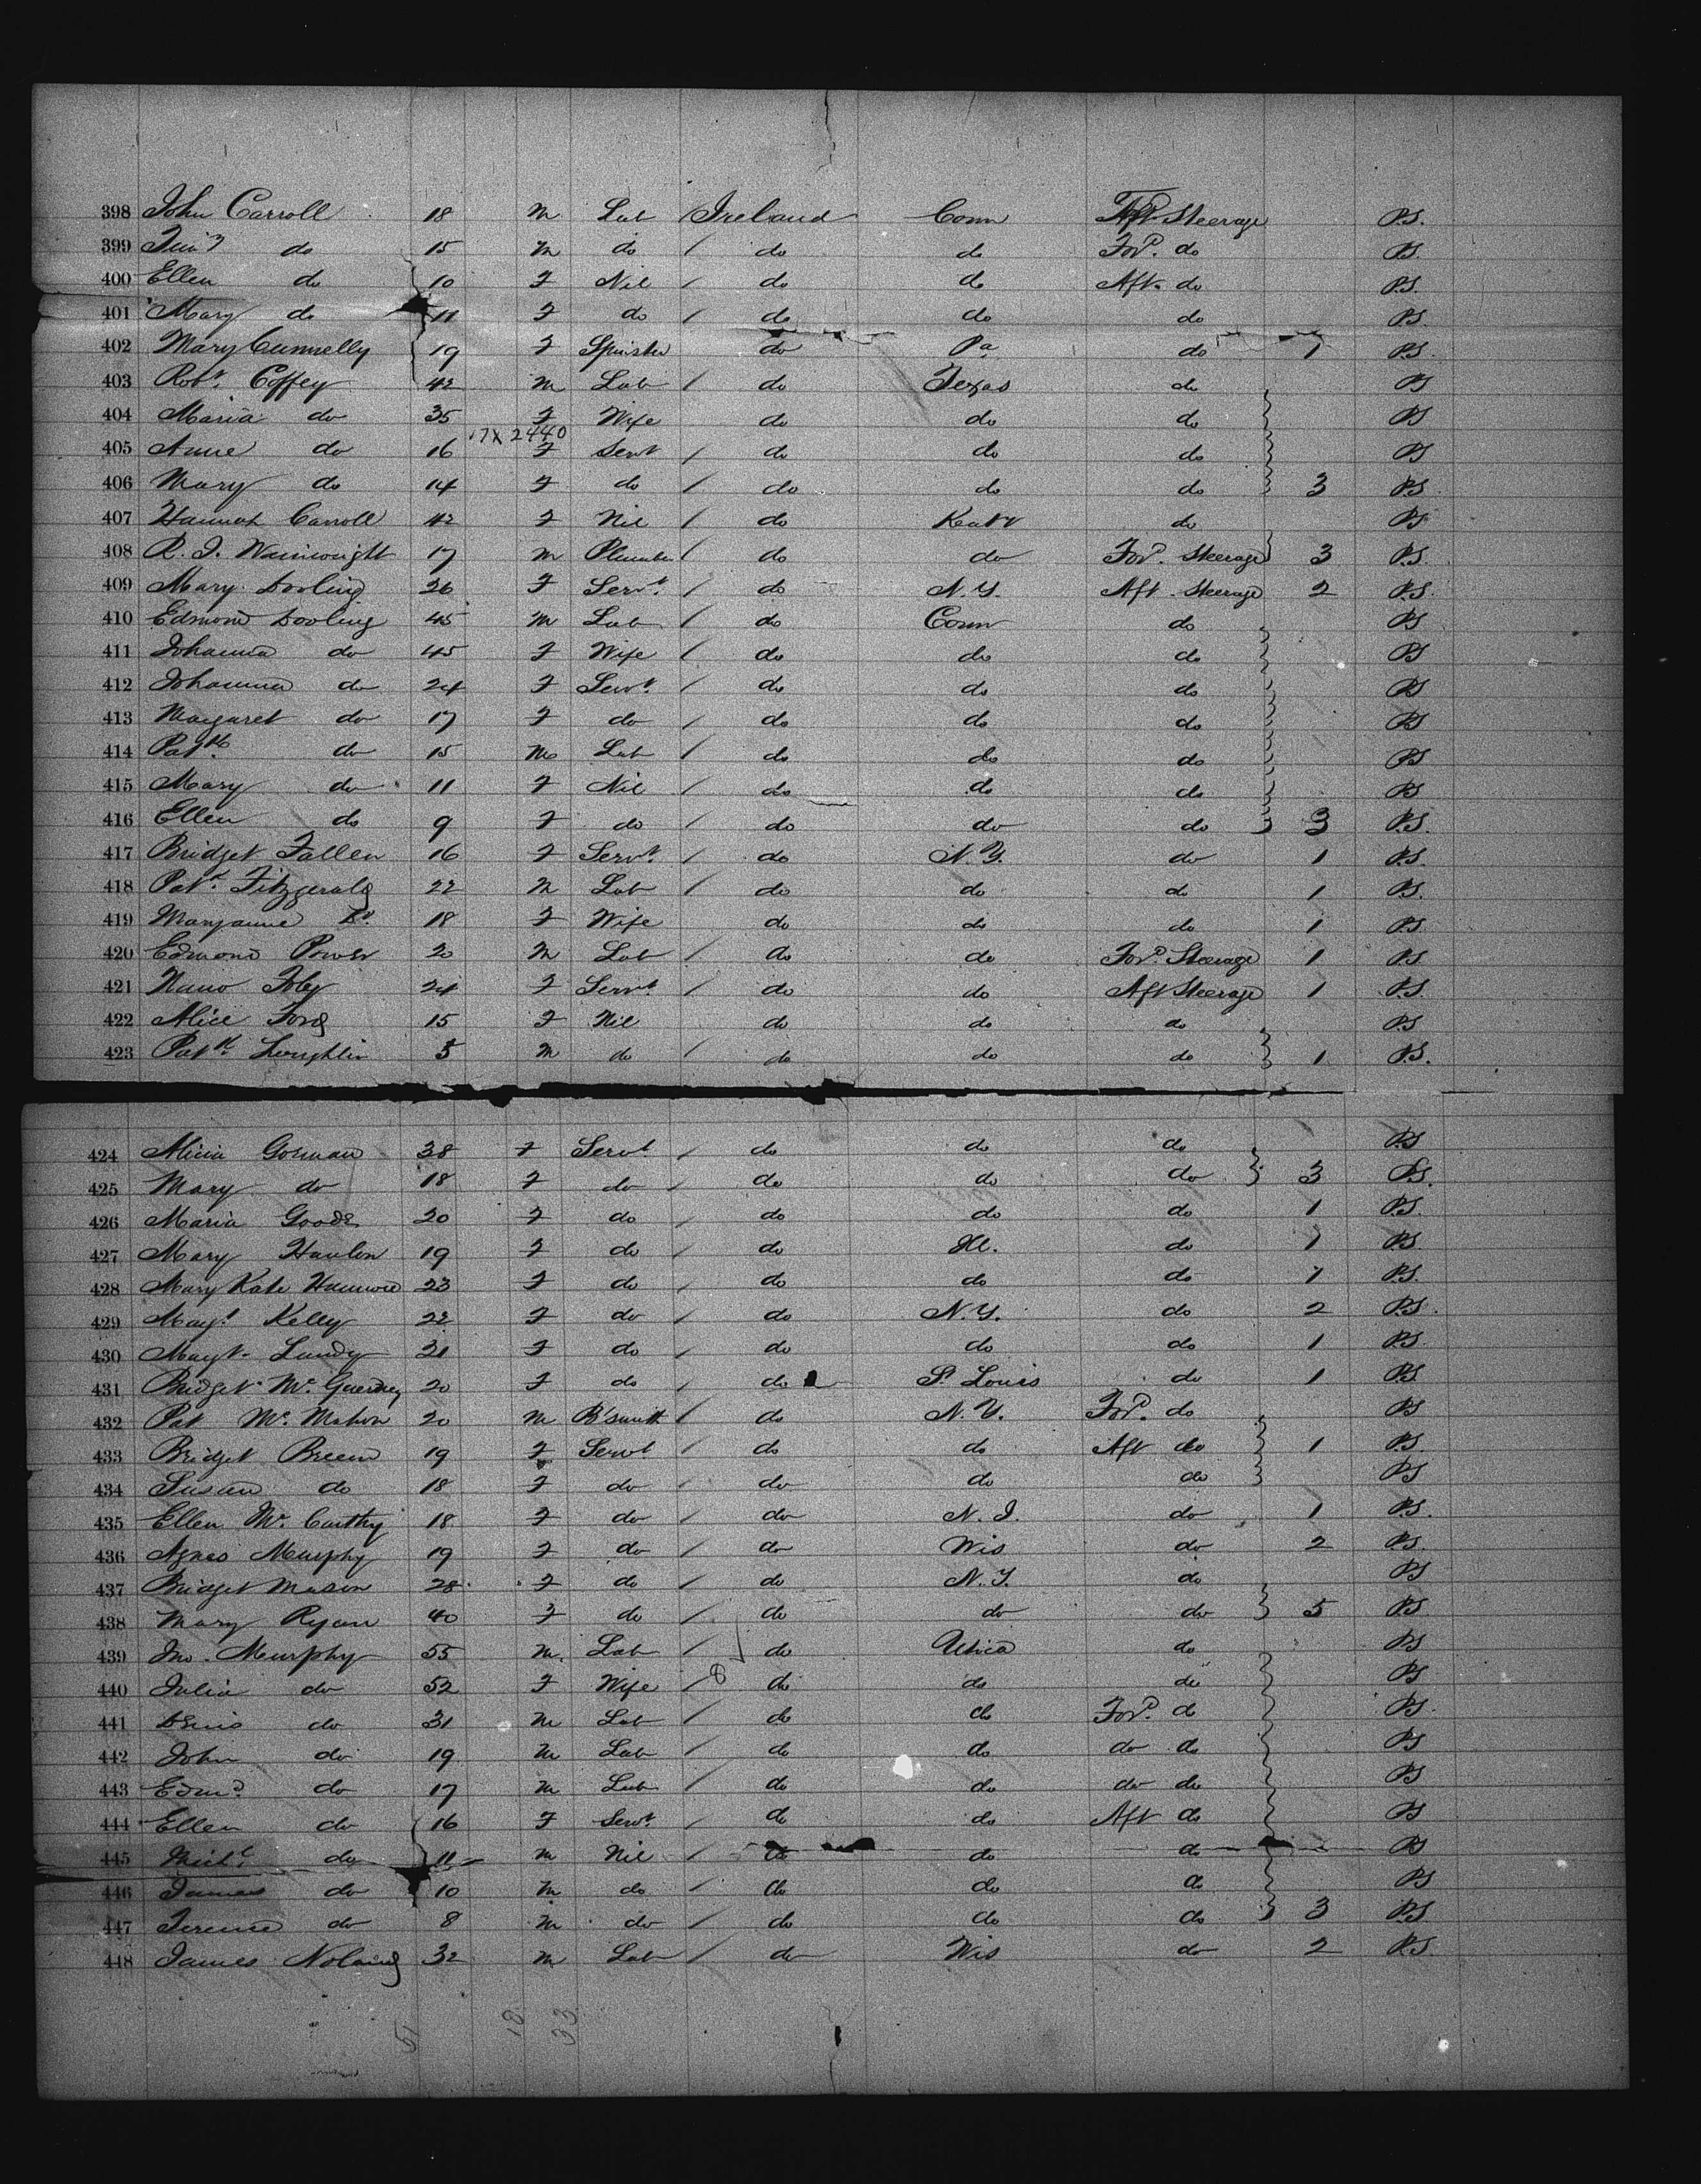 398 John Carroll 18 M Lab / Ireland Conn Aft Steerage P.S.
399 Tim.y do 15 M do / do do For.d do P.S.
400 Ellen do 10 F Nil / do do Aft. do P.S.
401 Mary do 11 F do / do do do P.S.
402 Mary Cunnelly 19 F Spinster do Pa do 1 P.S.
403 Rob.t Coffey 42 M Lab / do Texas do P.S
404 Maria do 35 F Wife do do do P.S
17X2440
405 Anne do 16 F Servt / do do do P.S
406 Mary do 14 F do / do do do 3 P.S.
407 Hannah Carroll 42 F Nil / do do P.S
408 R. J. Wainwright 17 M Plumber / do do For.d Steerage 3 P.S.
409 Mary Dooling 26 F Serv.t / do N.Y. Aft. Steerage 2 P.S.
410 Edmond Dooling 45 M Lab / do Conn do P.S
411 Johanna do 45 F Wife / do do do P.S
412 Johanna do 24 F Serv.t / do do do P.S
413 Margaret do 17 F do / do do do P.S
414 Pat.k do 15 M Lab / do do do P.S
415 Mary do 11 F Nil / do do do P.S
416 Ellen do 9 F do / do do do 3 P.S.
417 Bridget Fallen 16 F Serv.t / do N.Y. do 1 P.S.
418 Pat.k Fitzgerald 22 M Lab / do do do 1 P.S.
419 Maryanne D.o 18 F Wife do do do 1 P.S
420 Edmond Power 20 M Lab / do do For.d Steerage 1 P.S
421 Nano Foley 24 F Serv.t / do do Aft Steerage 1 P.S.
422 Alice Ford 15 F Nil do do do P.S
423 Pat.k Loughlin 5 M do / do do do 1 P.S.
424 Alicia Gorman 38 F Serv.t / do do do P.S
425 Mary do 18 F do / do do do 3 P.S.
426 Maria Goode 20 F do / do do do 1 P.S.
427 Mary Hanlon 19 F do / do Ill. do 1 P.S
428 Mary Kate 23 F do / do do do 1 P.S.
429 Mag.t Kelly 22 F do / do N.Y. do 2 P.S.
430 Magt. Lundy 31 F do / do do do 1 P.S.
431 Bridget 20 F do / do St. Louis do 1 P.S
432 Pat Mc. Mahon 20 M B'smith / do N.Y. For.d do P.S
433 Bridget Breen 19 F Servt / do do Aft do 1 P.S.
434 Susan do 18 F do / do do do P.S
435 Ellen Mc. Carthy 18 F do / do N.J. do 1 P.S.
436 Agnes Murphy 19 F do / do Wis do 2 P.S
437 Bridget Mason 28 F do / do N.Y. do P.S
438 Mary Ryan 40 F do / do do do 5 P.S
439 Jno. Murphy 55 M. Lab / do Utica do P.S
440 Julia do 52 F Wife / 8 do do do P.S
441 Denis do 31 M Lab / do do For.d do P.S.
442 John do 19 M Lab / do do do do P.S
443 Edm.d do 17 M Lab / do do do do P.S
444 Ellen do 16 F Serv.t / do do Aft do P.S
445 Mich.l do 11 M Nil / do do do P.S
446 James do 10 M do / do do do P.S
447 Terence do 8 M do / do do do 3 P.S
448 James 32 M Lab / do Wis do 2 P.S.
51 18 33